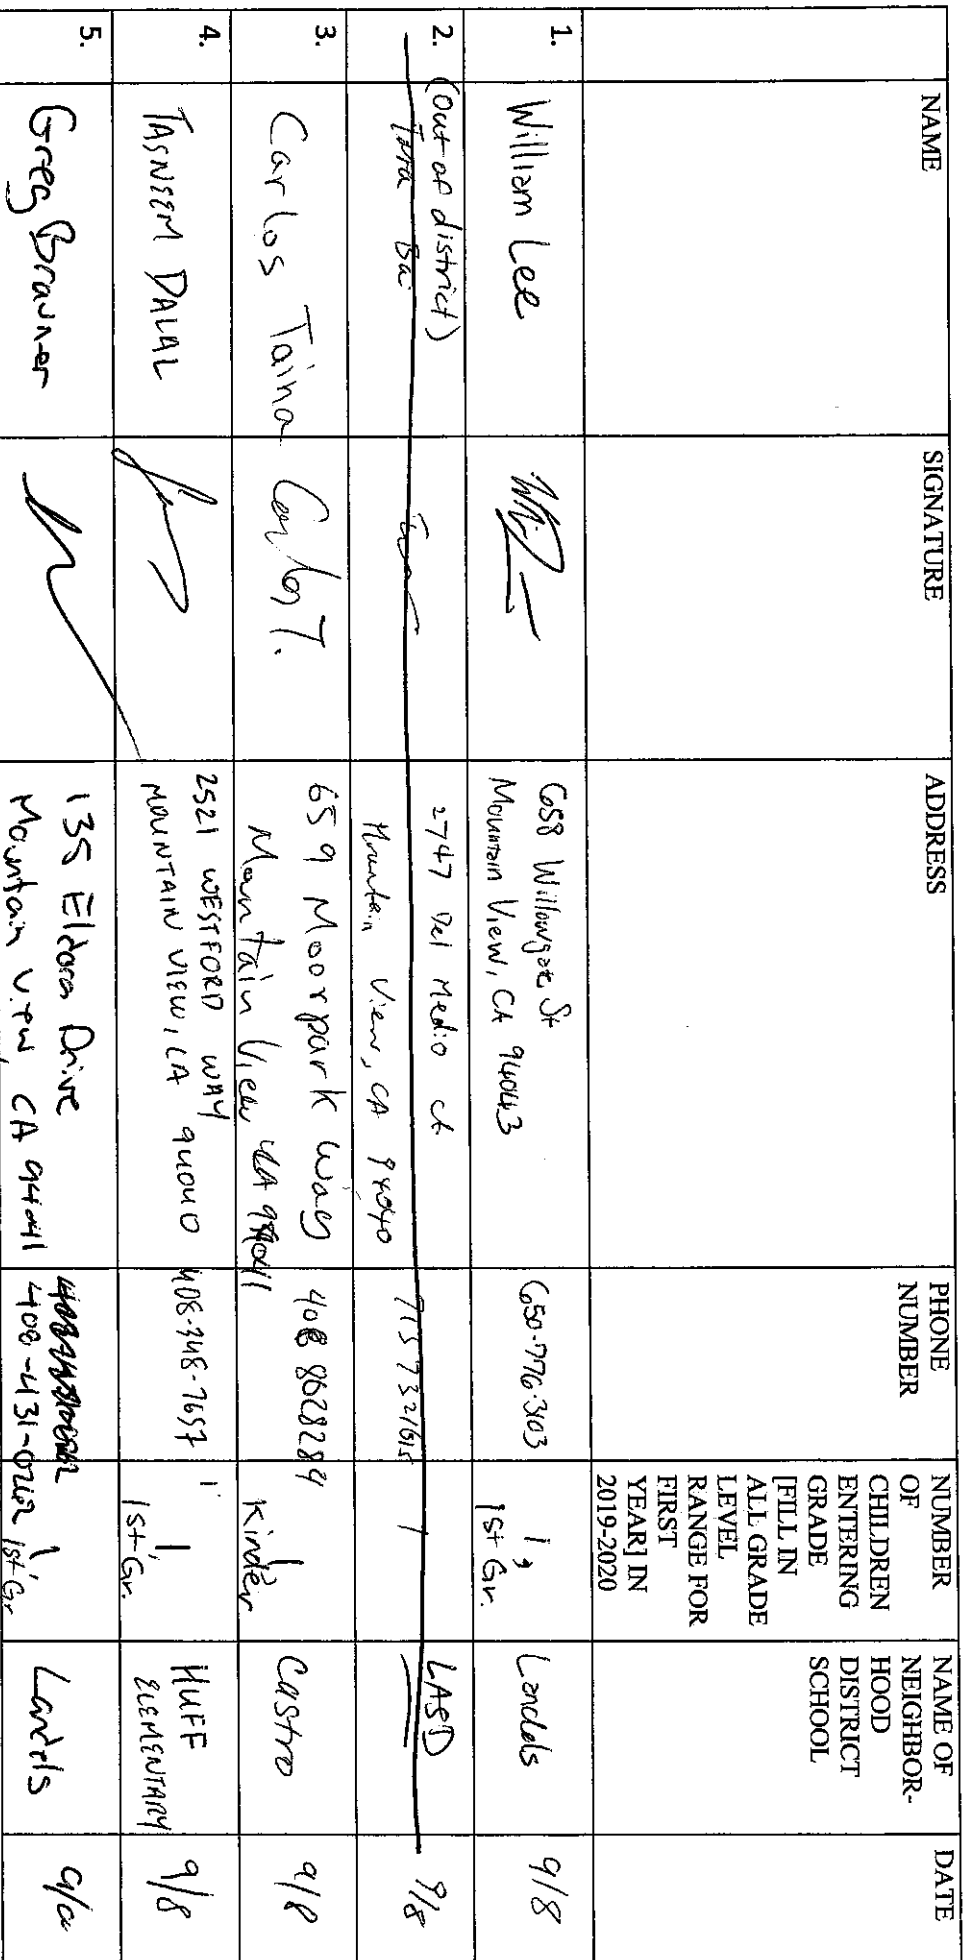 NAME
SIGNATURE
ADDRESS
PHONE
NUMBER
NUMBER
OF
CHILDREN
ENTERING
GRADE
[FILL IN
ALL GRADE
LEVEL
RANGE FOR
FIRST
YEAR] IN
2019-2020
NAME OF
NEIGHBOR-
HOOD
DISTRICT
SCHOOL
DATE
1.
William Lee
658 Willowgate St
Mountain View, CA 94043
650-776-3103
1,
1st Gr.
Landels
9/8
2.
(out of district)
Tara Bai
2747 Del Medio ct
Mountain View, CA 94040
715 7321615
1
LASD
9/8
3.
Carlos Taina
Carlos T.
659 Moorpark Way
Mountain View CA 94041
408 8628284
1
Kinder
Castro
9/8
4.
TASNEEM DALAL
2521 WESTFORD WAY
MOUNTAIN VIEW, CA 94040
408-348-7657
1
1st Gr.
HUFF
ELEMENTARY
9/8
5.
Greg Brauner
135 Eldora Drive
Mountain View, CA 94041
408-431-0262
1
1st Gr
Landels